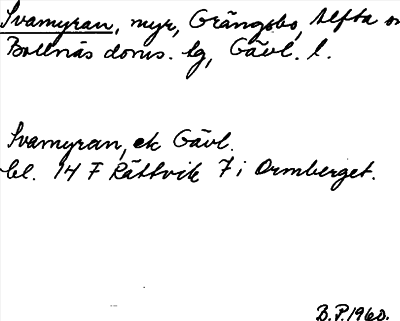 Svamyran, myr, Grängsbo, Alfta
Bollnäs doms. lg, Gävl. l.
Svamyran, ek Gävl.
bl. 14 F Rättvik 7 i Ormberget.
B.P. 1960.